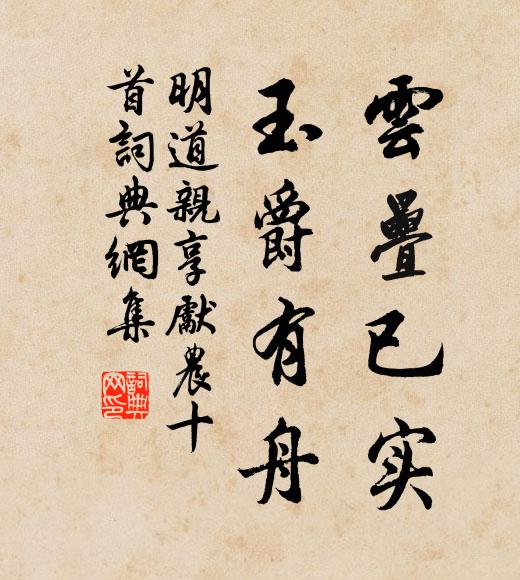 雲疊已实
玉爵有舟
明道親享獻農十
首詞典網集
詞典
网印